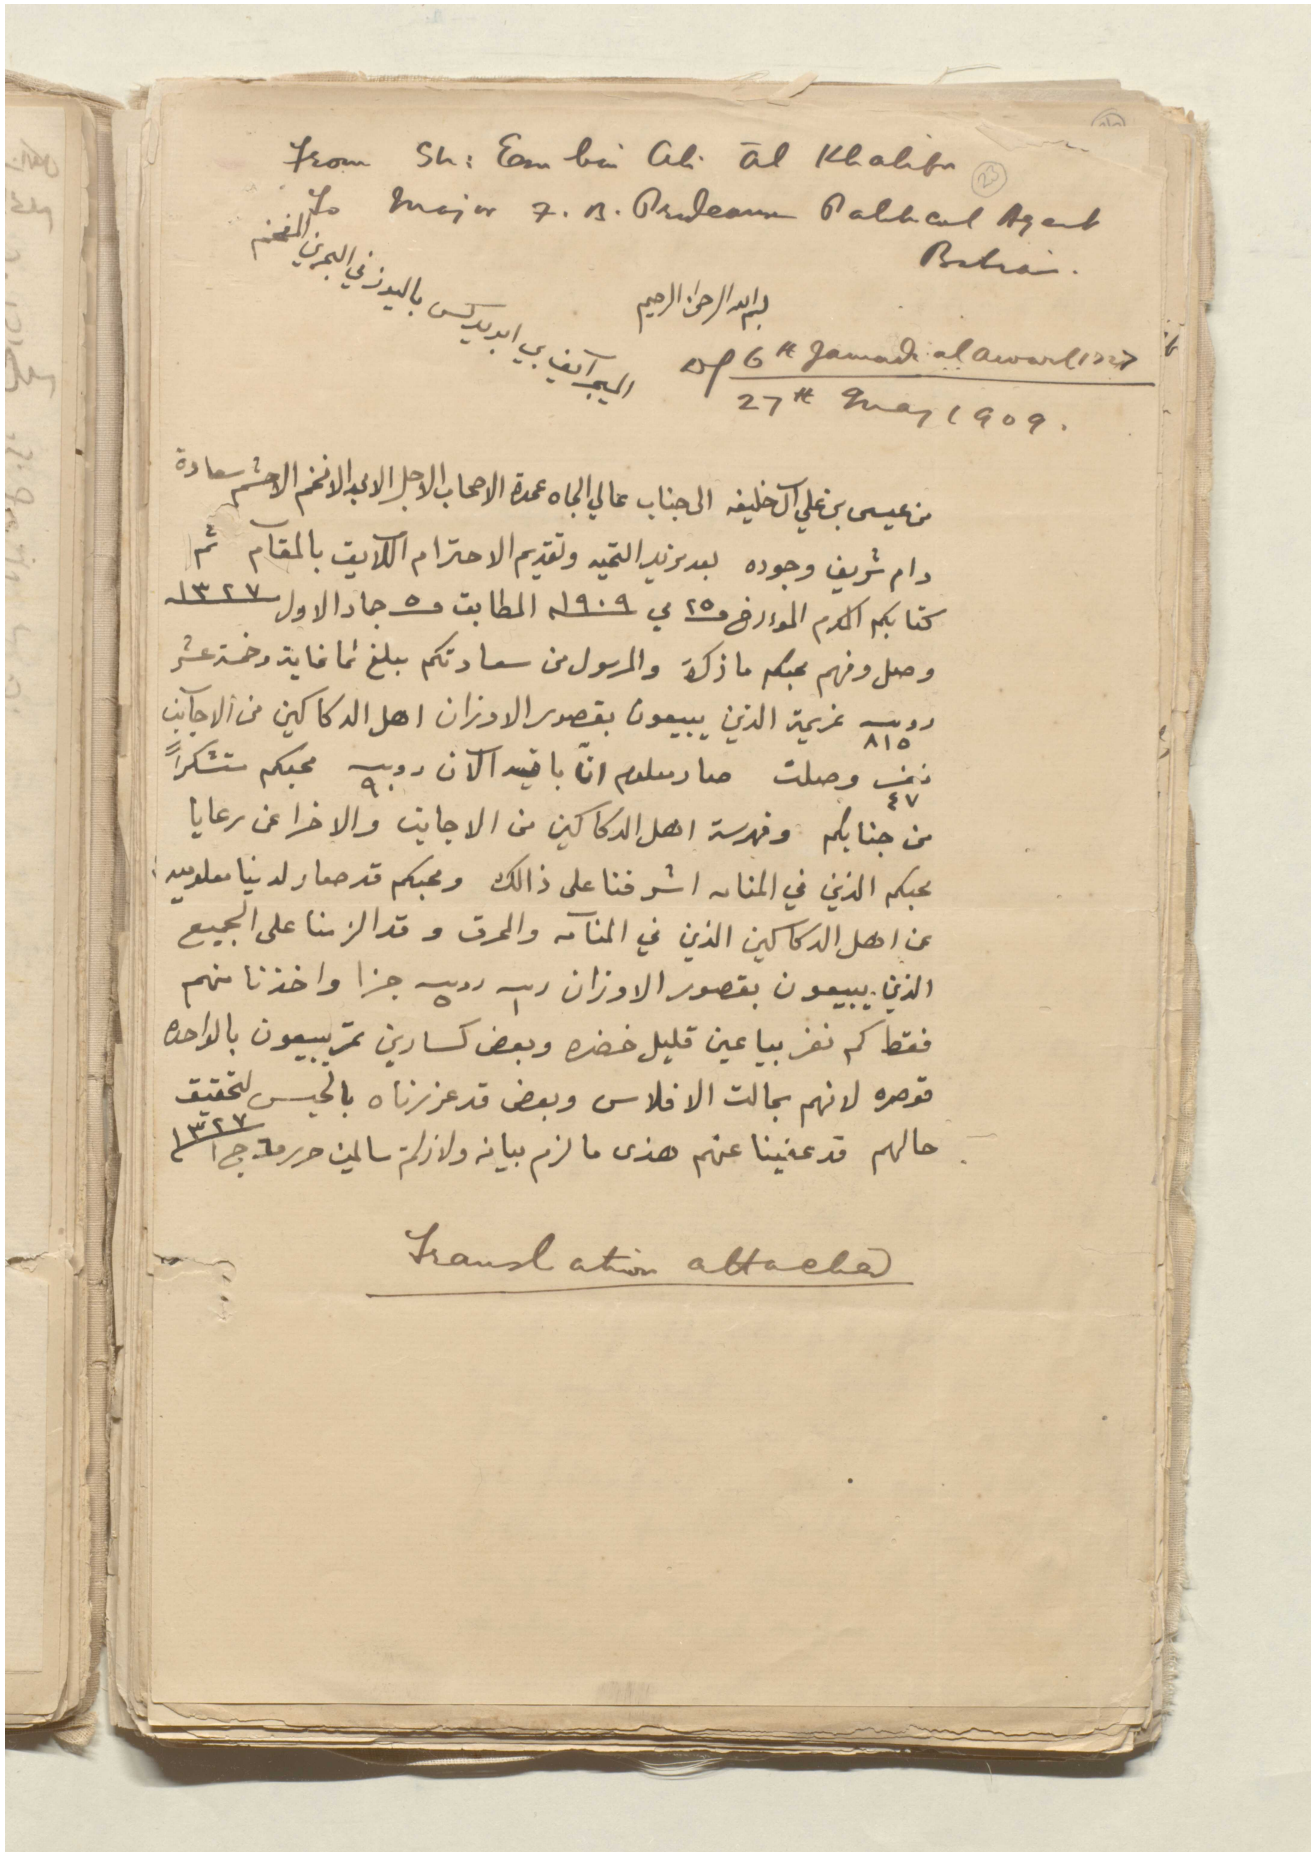 From Sh: Esa bin Ali Āl Khalifa
23
To Major F. B. Prideaux Political Agent
Bahrain.
بسم الله الرحمن الرحيم
الميجر آيف بي ابريدكس باليوز في البحرين المفخم
D/ 6th Jamadi al Awwal 1327
27th May 1909.
من عيسى بن علي آل خليفه الى جناب عالي الجاه عمدة الاصحاب الاجل الامجد الافخم الاحشم سعادة
دام شريف وجوده بعد مزيد التحيه وتقديم الاحترام اللايق بالمقام ثم
كتابكم المكرم المؤرخ ٢٥ مي ١٩٠٩ المطابق ٥ جماد الاول ١٣٢٧
وصل وفهم محبكم ما ذكرة والمرسول من سعادتكم مبلغ ثمانماية وخمسة عشر
روبيه ٨١٥ غريمة الذين يبيعون بقصور الاوزان اهل الدكاكين من الاجانب
نفر ٤٧ وصلت صار معلوم انّ باقيه الآن روبيه ٩ محبكم متشكراً
من جنابكم وفهرسة اهل الدكاكين من الاجانب والاخرا عن رعايا
محبكم الذين في المنامه اشرفنا على ذالك ومحبكم قد صار لدينا معلوميه
عن اهل الدكاكين الذين في المنآمه والمحرق وقد الزمنا على الجميع
الذين يبيعون بقصور الاوزان ربيه ١ روبيه ٥ جزا واخذنا منهم
فقط كم نفر بياعين قليل خضره وبعض كسارين تمر يبيعون بالواحده
قوصره لانهم بحالت الافلاس وبعض قد عزرناه بالحبس لتحقيق
حالهم قد عفينا عنهم هذى ما لزم بيانه ولازلتم سالمين حرر ٦ ج ١ ١٣٢٧
Translation attached